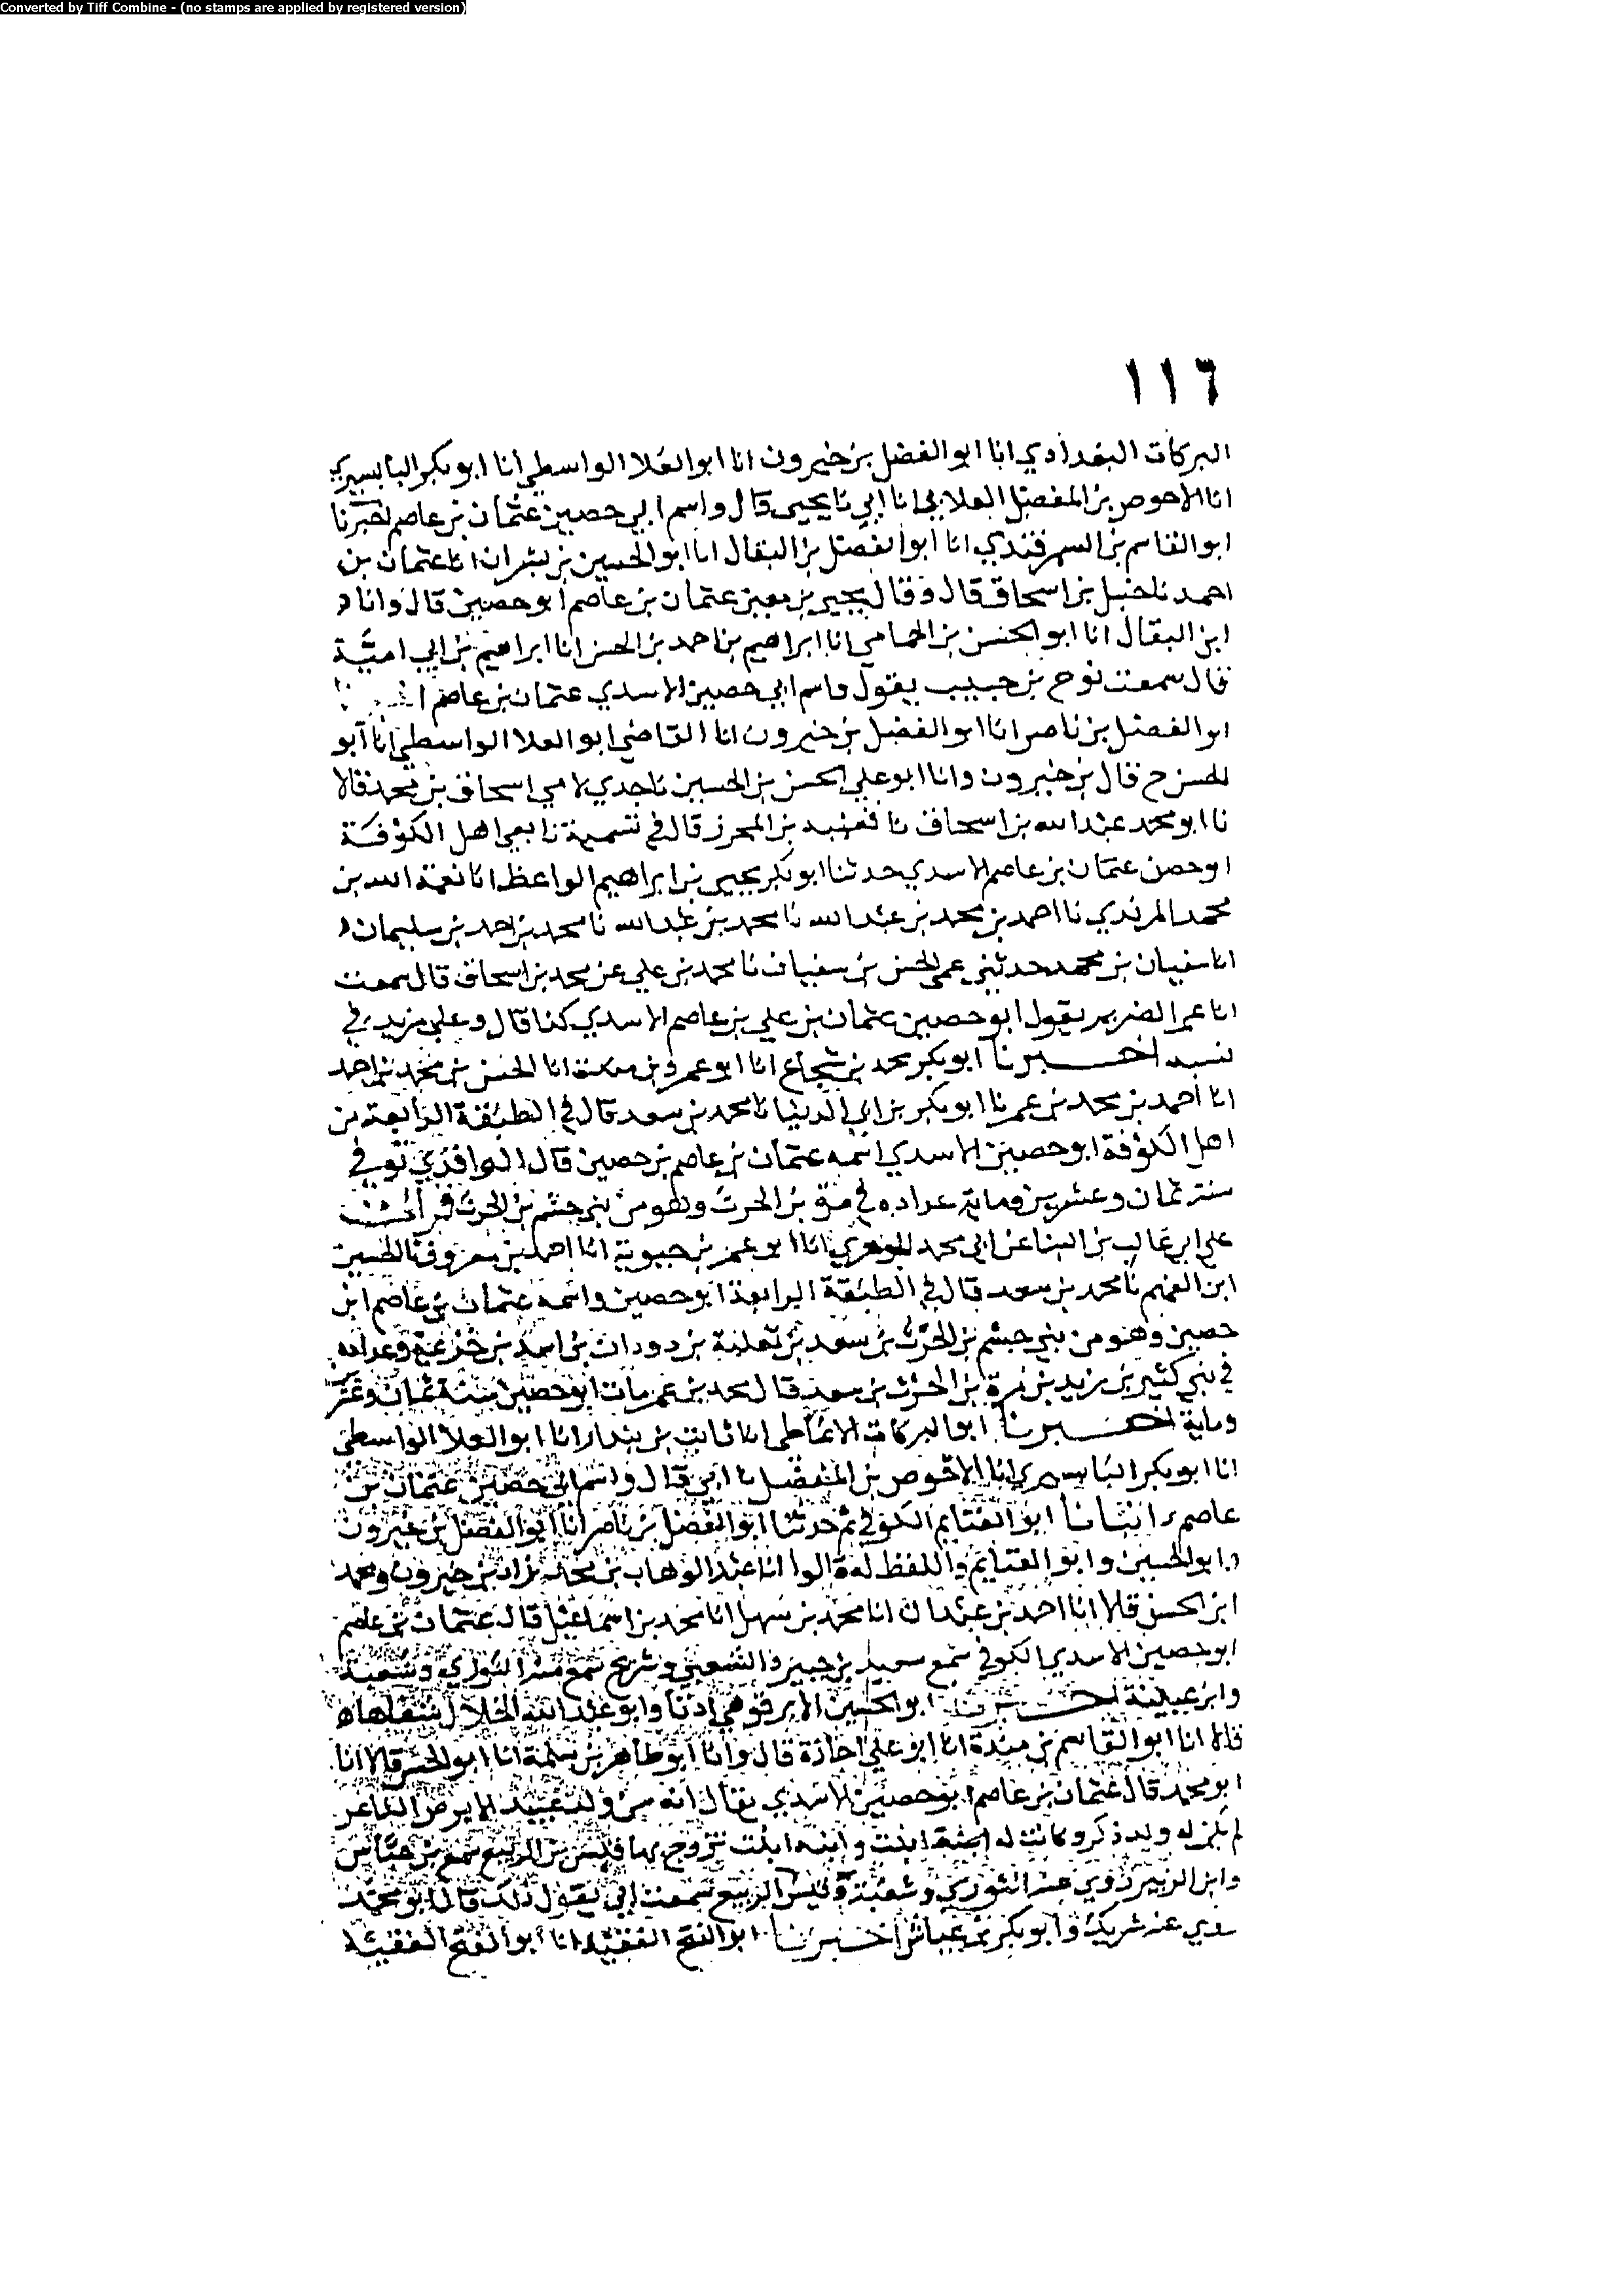 Converted by Tiff Combine - (no stamps are applied by registered version)
١١٦
البركات البغدادي انا ابو الفضل بن خيرون انا ابو العلا الواسطي انا ابو بكر البابسيري
انا الاحوص بن المفضل الغلابي انا ابي نا يحيى قال واسم ابي حصين عثمان بن عاصم اخبرنا
ابو القاسم بن السمرقندي انا ابو الفضل بن البقال انا ابو الحسين بن بشران انا عثمان بن
احمد نا حنبل بن اسحاق قال وقال يحيى بن معين عثمان بن عاصم ابو حصين قال وانا
ابن البقال انا ابو الحسن بن الحمامي انا ابراهيم بن احمد بن الحسن انا ابراهيم بن ابي امية
قال سمعت نوح بن حبيب يقول واسم ابي حصين الاسدي عثمان بن عاصم
ابو الفضل بن ناصر انا ابو الفضل بن خيرون انا القاضي ابو العلا الواسطي انا ابو
الحسن ح قال بن خيرون وانا ابو علي الحسن بن الحسين نا جدي لامي اسحاق بن محمد قالا
نا ابو محمد عبد الله بن اسحاق نا قعنب بن المحرز قال في تسمية تابعي اهل الكوفة
ابو حصين عثمان بن عاصم الاسدي حدثنا ابو بكر يحيى بن ابراهيم الواعظ انا نعمة الله بن
محمد المرندي نا احمد بن محمد بن عبد الله نا محمد بن عبد الله نا محمد بن احمد بن سليمان
انا سفيان بن محمد حدثني عمي الحسن بن سفيان نا محمد بن علي عن محمد بن اسحاق قال سمعت
ابا عمر الضرير يقول ابو حصين عثمان بن علي بن عاصم الاسدي كذا قال وعلي مزيد في
نسبه اخبرنا ابو بكر محمد بن شجاع انا ابو عمرو بن منده انا الحسن بن محمد بن احمد
انا احمد بن محمد بن عمر نا ابو بكر بن ابي الدنيا نا محمد بن سعد قال في الطبقة الرابعة من
اهل الكوفة ابو حصين الاسدي اسمه عثمان بن عاصم بن حصين قال الواقدي توفي في
سنة ثمان وعشرين وماية عداده في مرة بن الحرث وهو من بني جشم بن الحرث قرأت
على ابي غالب بن البنا عن ابي محمد الجوهري انا ابو عمر بن حيوية انا احمد بن معروف نا الحسين
ابن الفهم نا محمد بن سعد قال في الطبقة الرابعة ابو حصين واسمه عثمان بن عاصم ابن
حصين وهو من بني جشم بن الحرث بن سعد بن ثعلبة بن دودان بن اسد بن خزيمة وعداده
في بني كثير بن زيد بن مرة بن الحرث بن سعد قال محمد بن عمر مات ابو حصين سنة ثمان وعشرين
وماية اخبرنا ابو البركات الانماطي انا ثابت بن بندار انا ابو العلا الواسطي
انا ابو بكر البابسيري انا الاحوص بن المفضل نا ابي قال واسم ابي حصين عثمان بن
عاصم انبانا ابو الغنايم الكوفي ثم حدثنا ابو الفضل بن ناصر انا ابو الفضل بن خيرون
وابو الحسين وابو الغنايم واللفظ له قالوا انا عبد الوهاب بن محمد زاد بن خيرون ومحمد
ابن الحسن قالا انا احمد بن عبدان انا محمد بن سهل انا محمد بن اسماعيل قال عثمان بن عاصم
ابو حصين الاسدي الكوفي سمع سعيد بن جبير والشعبي وشريح سمع منه الثوري وشعبة
وابن عيينة اخبرنا ابو الحسين الابرقوهي اذنا وابو عبد الله الخلال شفاها
قالا انا ابو القاسم بن مندة انا ابو علي اجازة قال وانا ابو طاهر بن سلمة انا ابو الحسن قالا انا
ابو محمد قال عثمان بن عاصم ابو حصين الاسدي يقال انه من ولد عبيد الابرص الشاعر
لم يكن له ولد ذكر وكانت له ابنة ابنت وابنه ابنت تزوج بها قيس بن الربيع سمع بن عباس
وابن الزبير روى عنه الثوري وشعبة وقيس الربيع سمعت ابي يقول ذلك قال ابو محمد
روى عنه شريك وابو بكر بن عياش اخبرنا ابو الفتح الفقيه انا ابو الفتح الفقيه